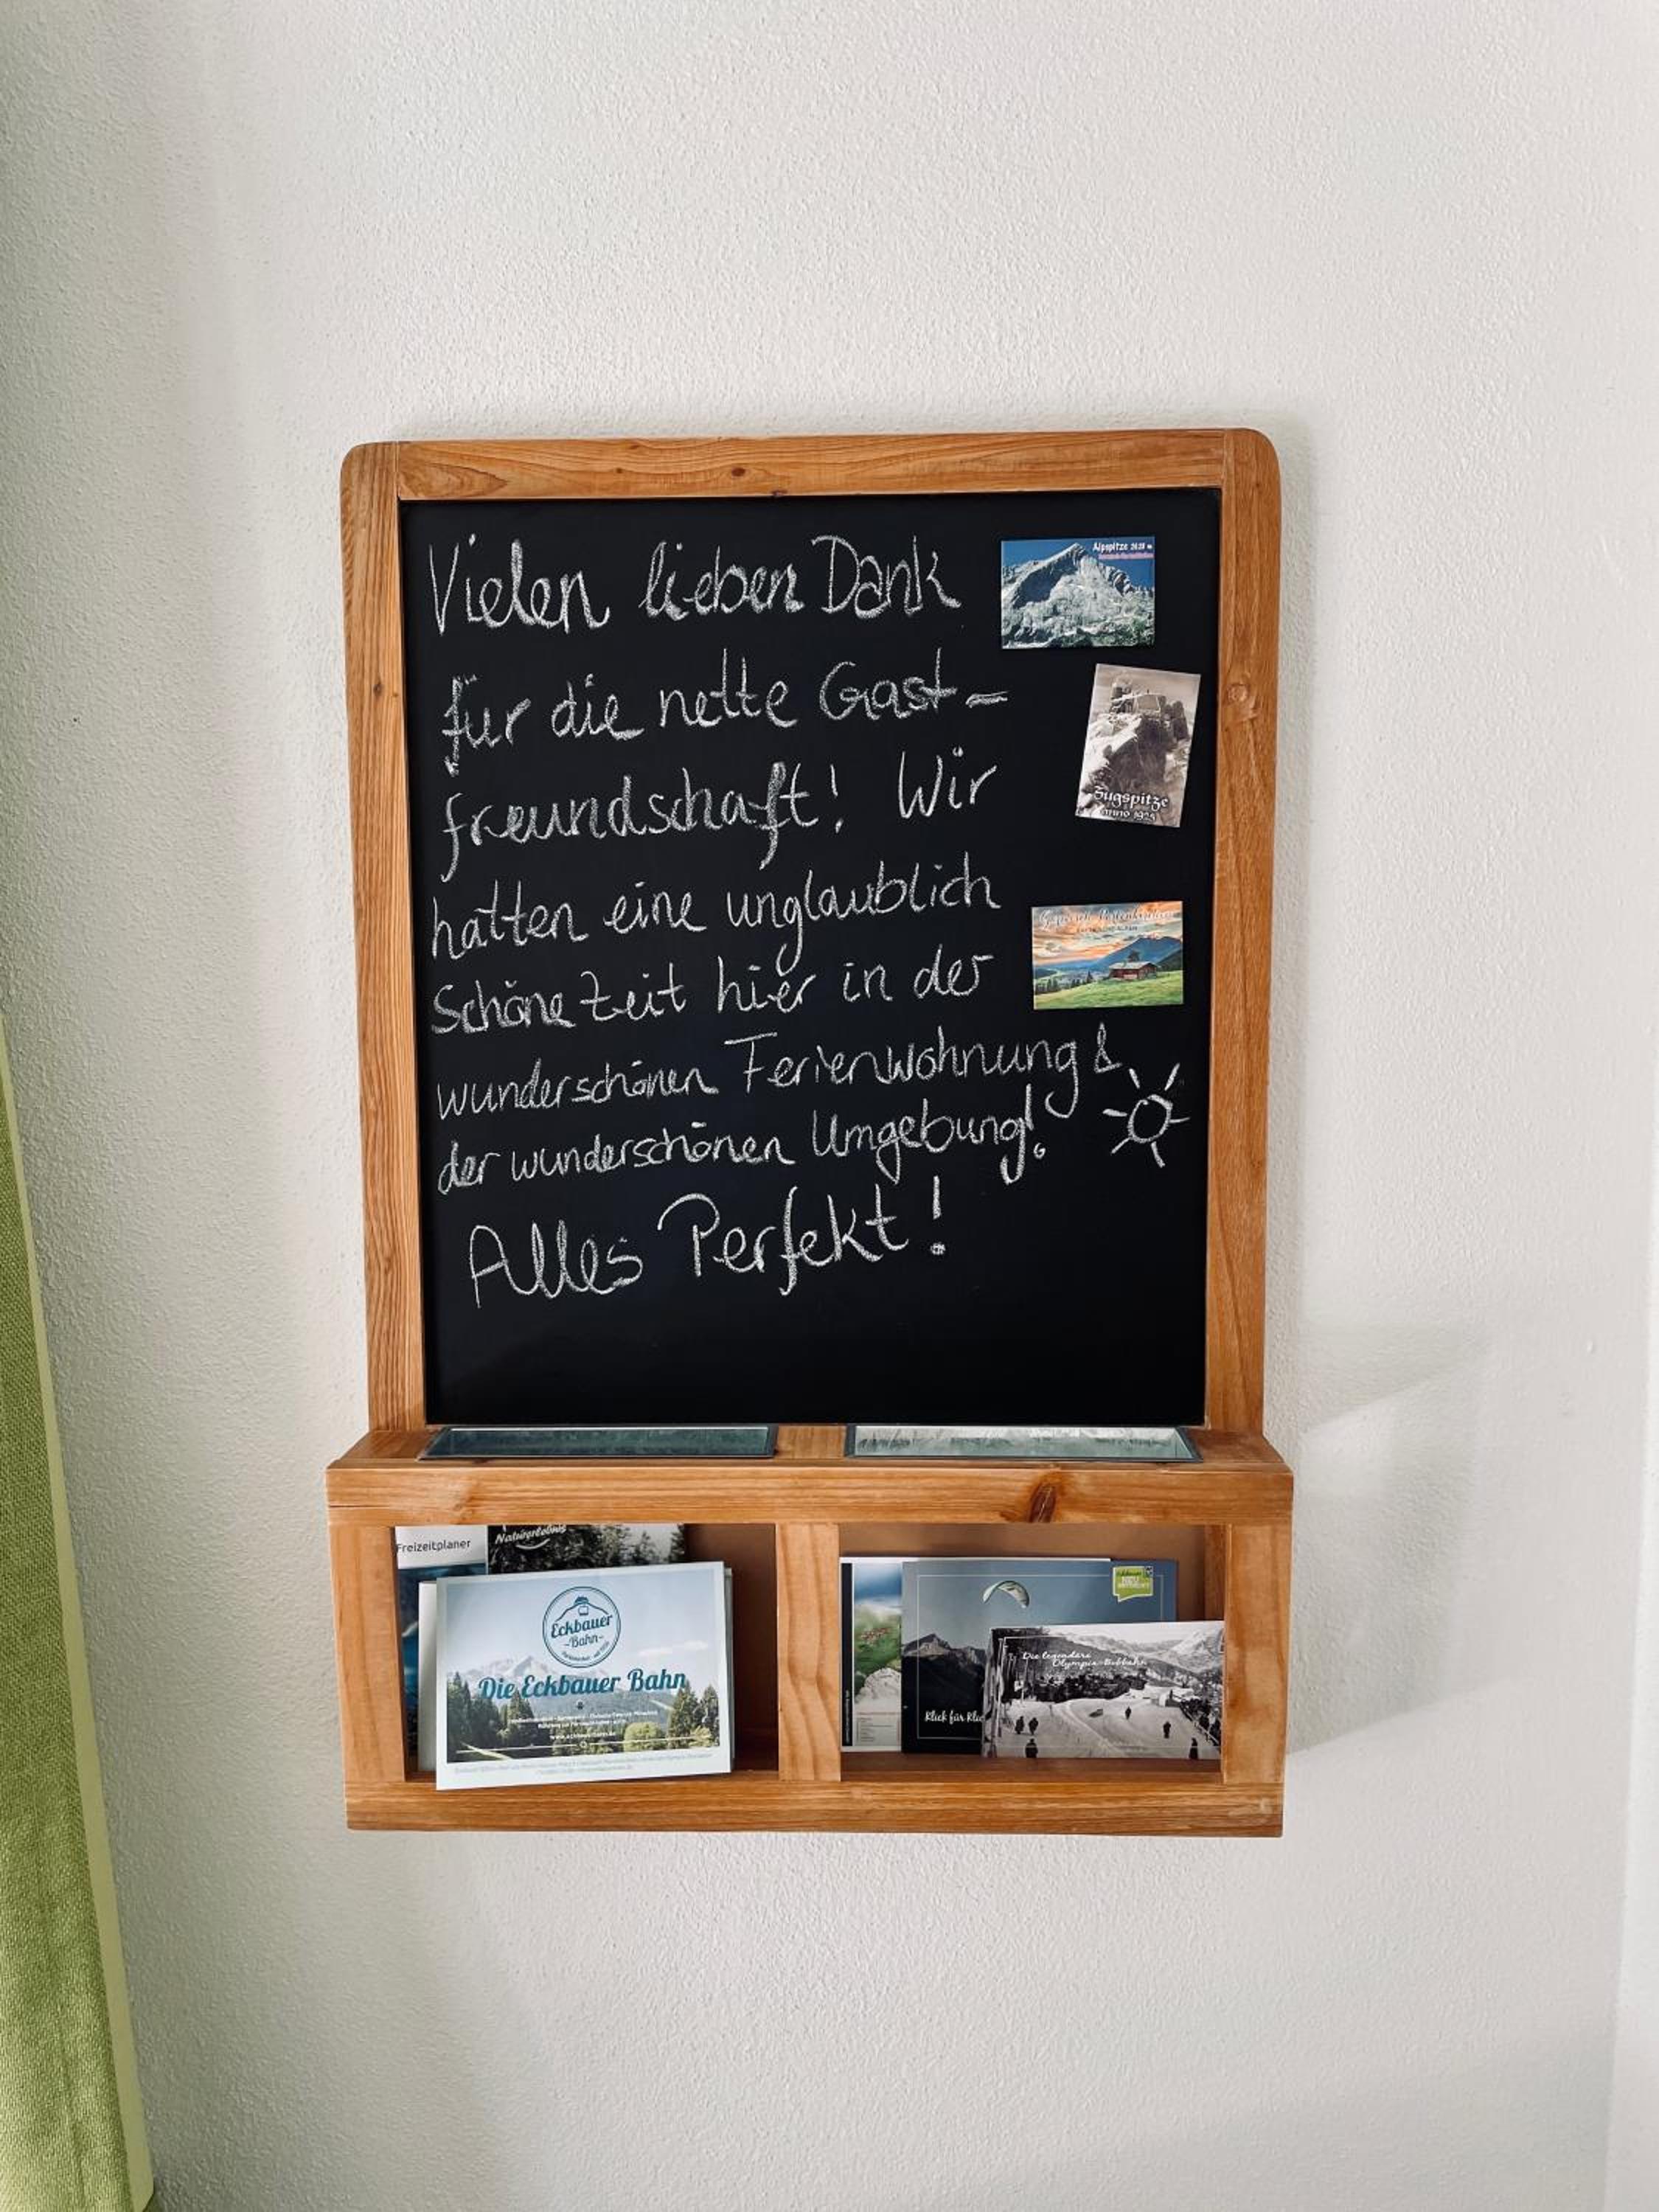 Vielen lieben Dank
für die nette Gast-
freundschaft! Wir
hatten eine unglaublich
Schöne Zeit hier in der
wunderschönen Ferienwohnung &
der wunderschönen Umgebung!
Alles Perfekt!
Alpspitze 2628 m
Zugspitze
anno 1925
Freizeitplaner
Naturerlebnis
Eckbauer
-Bahn-
Die Eckbauer Bahn
Klick für Klic
Die legendäre
Olympia-Bobbahn